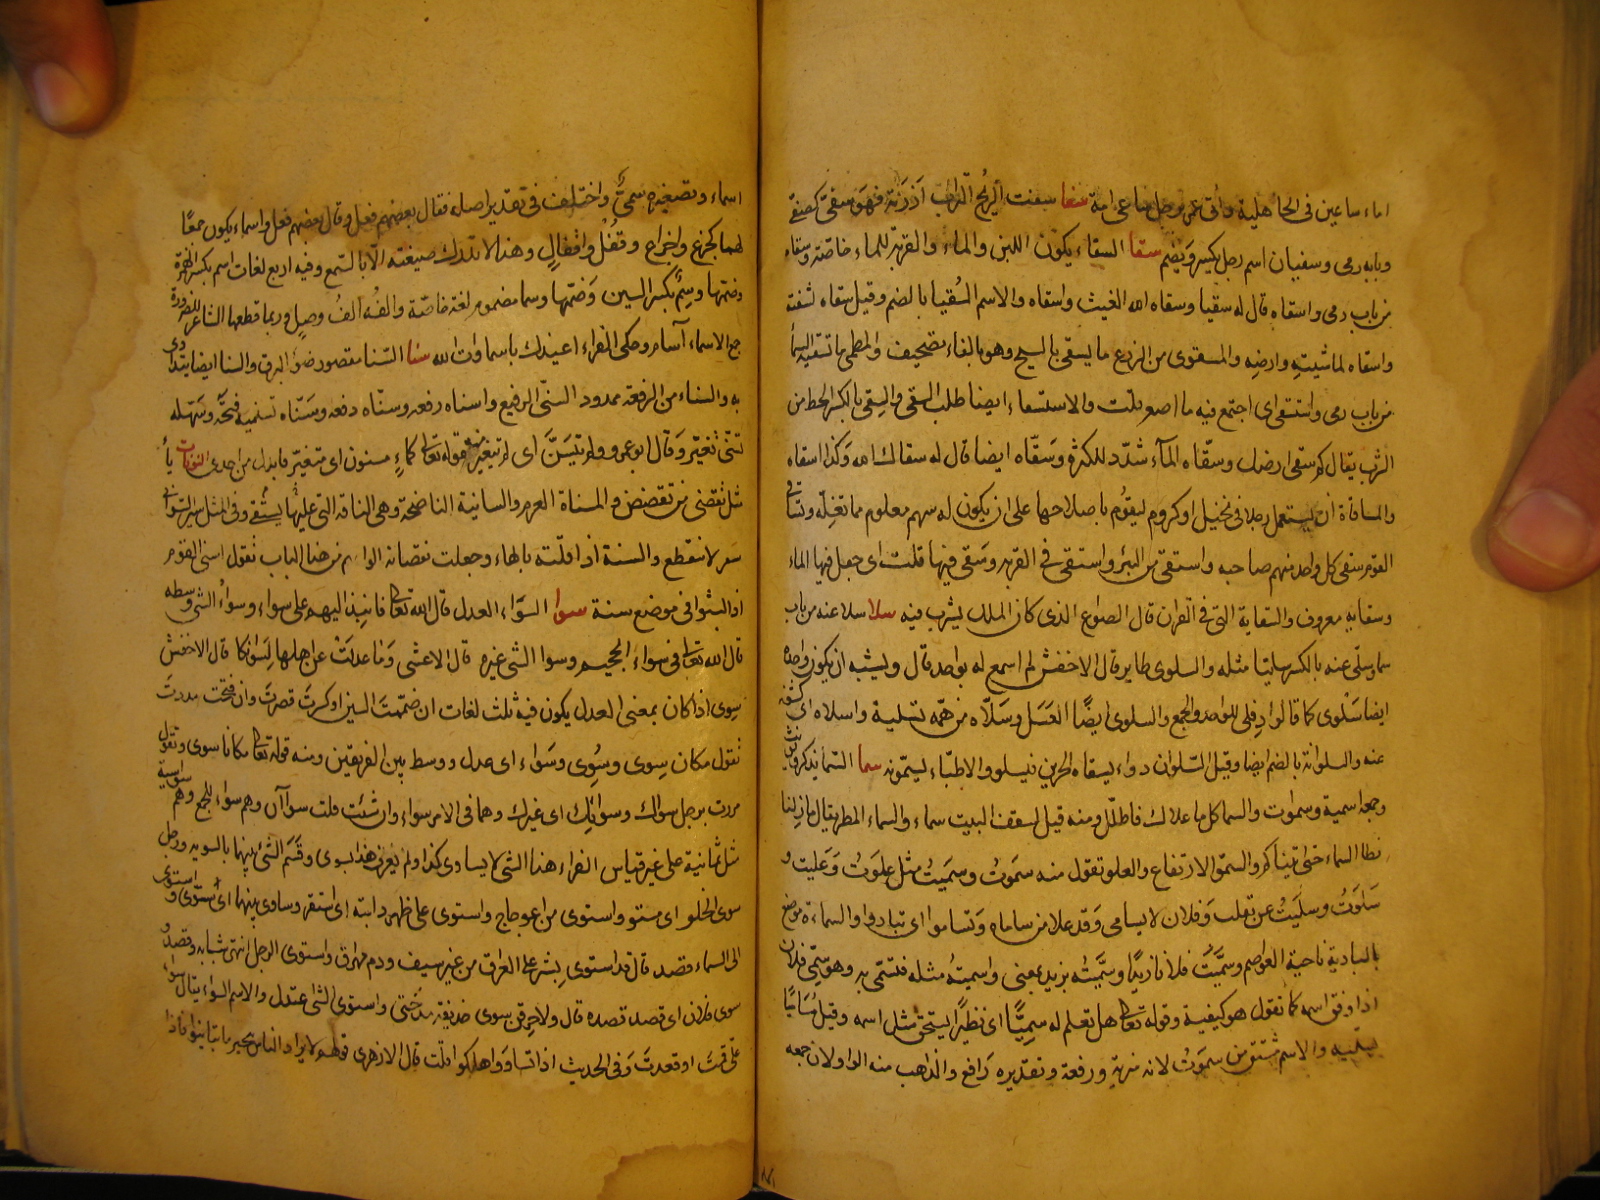 اماء ساعين في الجاهلية واتى عمر برجل ساعى امة سفا سفت الريح التراب اذرته فهو سفى كصفى
وبابه رمى وسفيان اسم رجل بكسر ويضم سقا السقاء يكون اللبن والماء والقربة للماء خاصة وسقاه
من باب رمى واسقاه قال له سقيا وسقاه الله الغيث واسقاه والاسم السقيا بالضم وقيل سقاه لشفته
واسقاه لماشيته وارضه والمسقوى من الزرع ما يسقى بالسيح وهو بالفاء تصحيف والمظمى ما تسقيه السماء
من باب رمى واستسقى اى اجتمع فيه ماء اصفر قلت والاستسقاء ايضا طلب السقى والسقى بالكسر الحظ من
الشرب يقال كم سقى ارضك وسقاه الماء شدد للكثرة وسقاه ايضا قال له سقاك الله وكذا اسقاه
والمساقاة ان يستعمل رجلا في نخيل او كروم ليقوم باصلاحها على ان يكون له سهم معلوم مما تغله وتساقى
القوم سقى كل واحد منهم صاحبه واستقى من البئر واستقى في القربة وسقى فيها قلت اى جعل فيها الماء
وسقاية معروف والسقاية التى في القران قال الصواع الذى كان الملك يشرب فيه سلا سلا عنه من باب
سما وسلى عنه بالكسر سليا مثله والسلوى طاير قال الاخفش لم اسمع له بواحد قال ويشبه ان يكون واحده
ايضا سلوى كما قالوا دفلى للواحد والجمع والسلوى ايضا العسل وسلاه من همه تسلية واسلاه اى كشفه
عنه والسلوانة بالضم ايضا وقيل السلوان دواء يسقاه الحزين فيسلو والاطباء يسمونه سما السماء يذكر ويؤنث
وجمعه اسمية وسموات والسما كل ما علاك فاظلك ومنه قيل لسقف البيت سماء والسماء المطر يقال ما زلنا
نطا السماء حتى اتيناكم والسمو الارتفاع والعلو تقول منه سموت وسميت مثل علوت وعليت و
سلوت وسليت عن ثعلب وفلان لا يسامى وقد علا من ساماه وتساموا اى تباروا والسماءة موضع
بالبادية ناحية العواصم وسميت فلانا زيدا وسميته بزيد بمعنى واسميته مثله فتسمى به وهو سمى فلان
اذا وفق اسمه كما تقول هو كنيه وقوله تعالى هل تعلم له سميا اى نظيرا يستحق مثل اسمه وقيل مساميا
يساميه والاسم مشتق من سموت لانه تنويه ورفعة وتقديره رافع والذاهب منه الواو لان جمعه
اسماء وتصغيره سمى واختلف في تقدير اصله فقال بعضهم فعل وقال بعضهم فعل واسماء يكون جمعا
لهما كجزع واجزاع وقفل واقفال وهذا لا تدرك صيغته الا بالسمع وفيه اربع لغات اسم بكسر الهمزة
وضمها وسم بكسر السين وضمها وسما مضموم لغة خاصة والفه الف وصل وربما قطعها الشاعر للضرورة
جمع الاسماء آسام وحكى الفراء اعيذك باسماوات الله سنا السنا مقصور ضوء البرق والسنا ايضا يتداوى
به والسناء من الرفعة ممدود السنى الرفيع واسناه رفعه وسناه دفعه وسناه تسنية فتحه وسهله
تسنى تغير وقال ابو عمرو ولم يتسن اى لم يتغير من قوله تعالى حماء مسنون اى متغير فابدل من احدى النونات ياء
مثل تقضى من تقضض والمسناة العرم والسانية الناضحة وهى الناقة التى عليها يستقى وفى المثل سير السوانى
سفر لا ينقطع والسنة اذا قلته بالهاء وجعلت نقصانه الواو من هذا الباب تقول اسنى القوم
اذا لبثوا في موضع سنة سوا السواء العدل قال الله تعالى فانبذ اليهم على سواء وسواء الشى وسطه
قال الله تعالى في سواء الجحيم وسوا الشى غيره قال الاعشى وما عدلت عن اهلها لسوائكا قال الاخفش
سوى اذا كان بمعنى العدل يكون فيه ثلث لغات ان ضممت السين او كسرت قصرت وان فتحت مددت
تقول مكان سوى وسوى وسواء اى عدل ووسط بين الفريقين ومنه قوله تعالى مكانا سوى وتقول
مررت برجل سواك وسوائك اى غيرك وهما في الامر سواء وان شئت قلت سواآن وهم سواء للجمع وهم سواسية
مثل ثمانية على غير قياس الفراء هذا الشى لا يساوى كذا ولم يعرف هذا يسوى وقسم الشئ بينهما بالسوية ورجل
سوى الخلق اى مستو واستوى من اعوجاج واستوى على ظهر دابته اى استقر وساوى بينهما اى سوى واستوى
الى السماء قصد قال قد استوى بشر على العراق من غير سيف ودم مهراق واستوى الرجل انتهى شبابه وقصد
سوى فلان اى قصد قصده قال ولاصرفن سوى حذيفة مدحتى واستوى الشئ اعتدل والاسم السواء يقال سواء
على قمت او قعدت وفى الحديث اذا تساووا هلكوا قلت قال الازهرى قولهم لا يزال الناس بخير ما تباينوا فاذا